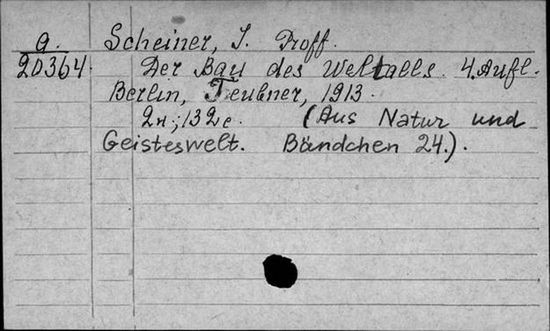 a. Scheiner, J. Proff.
20364. Der Bau des Weltalls. 4. Aufl.
Berlin, Teubner, 1913.
132 c. (Aus Natur und
Geisteswelt. Bändchen 24.).